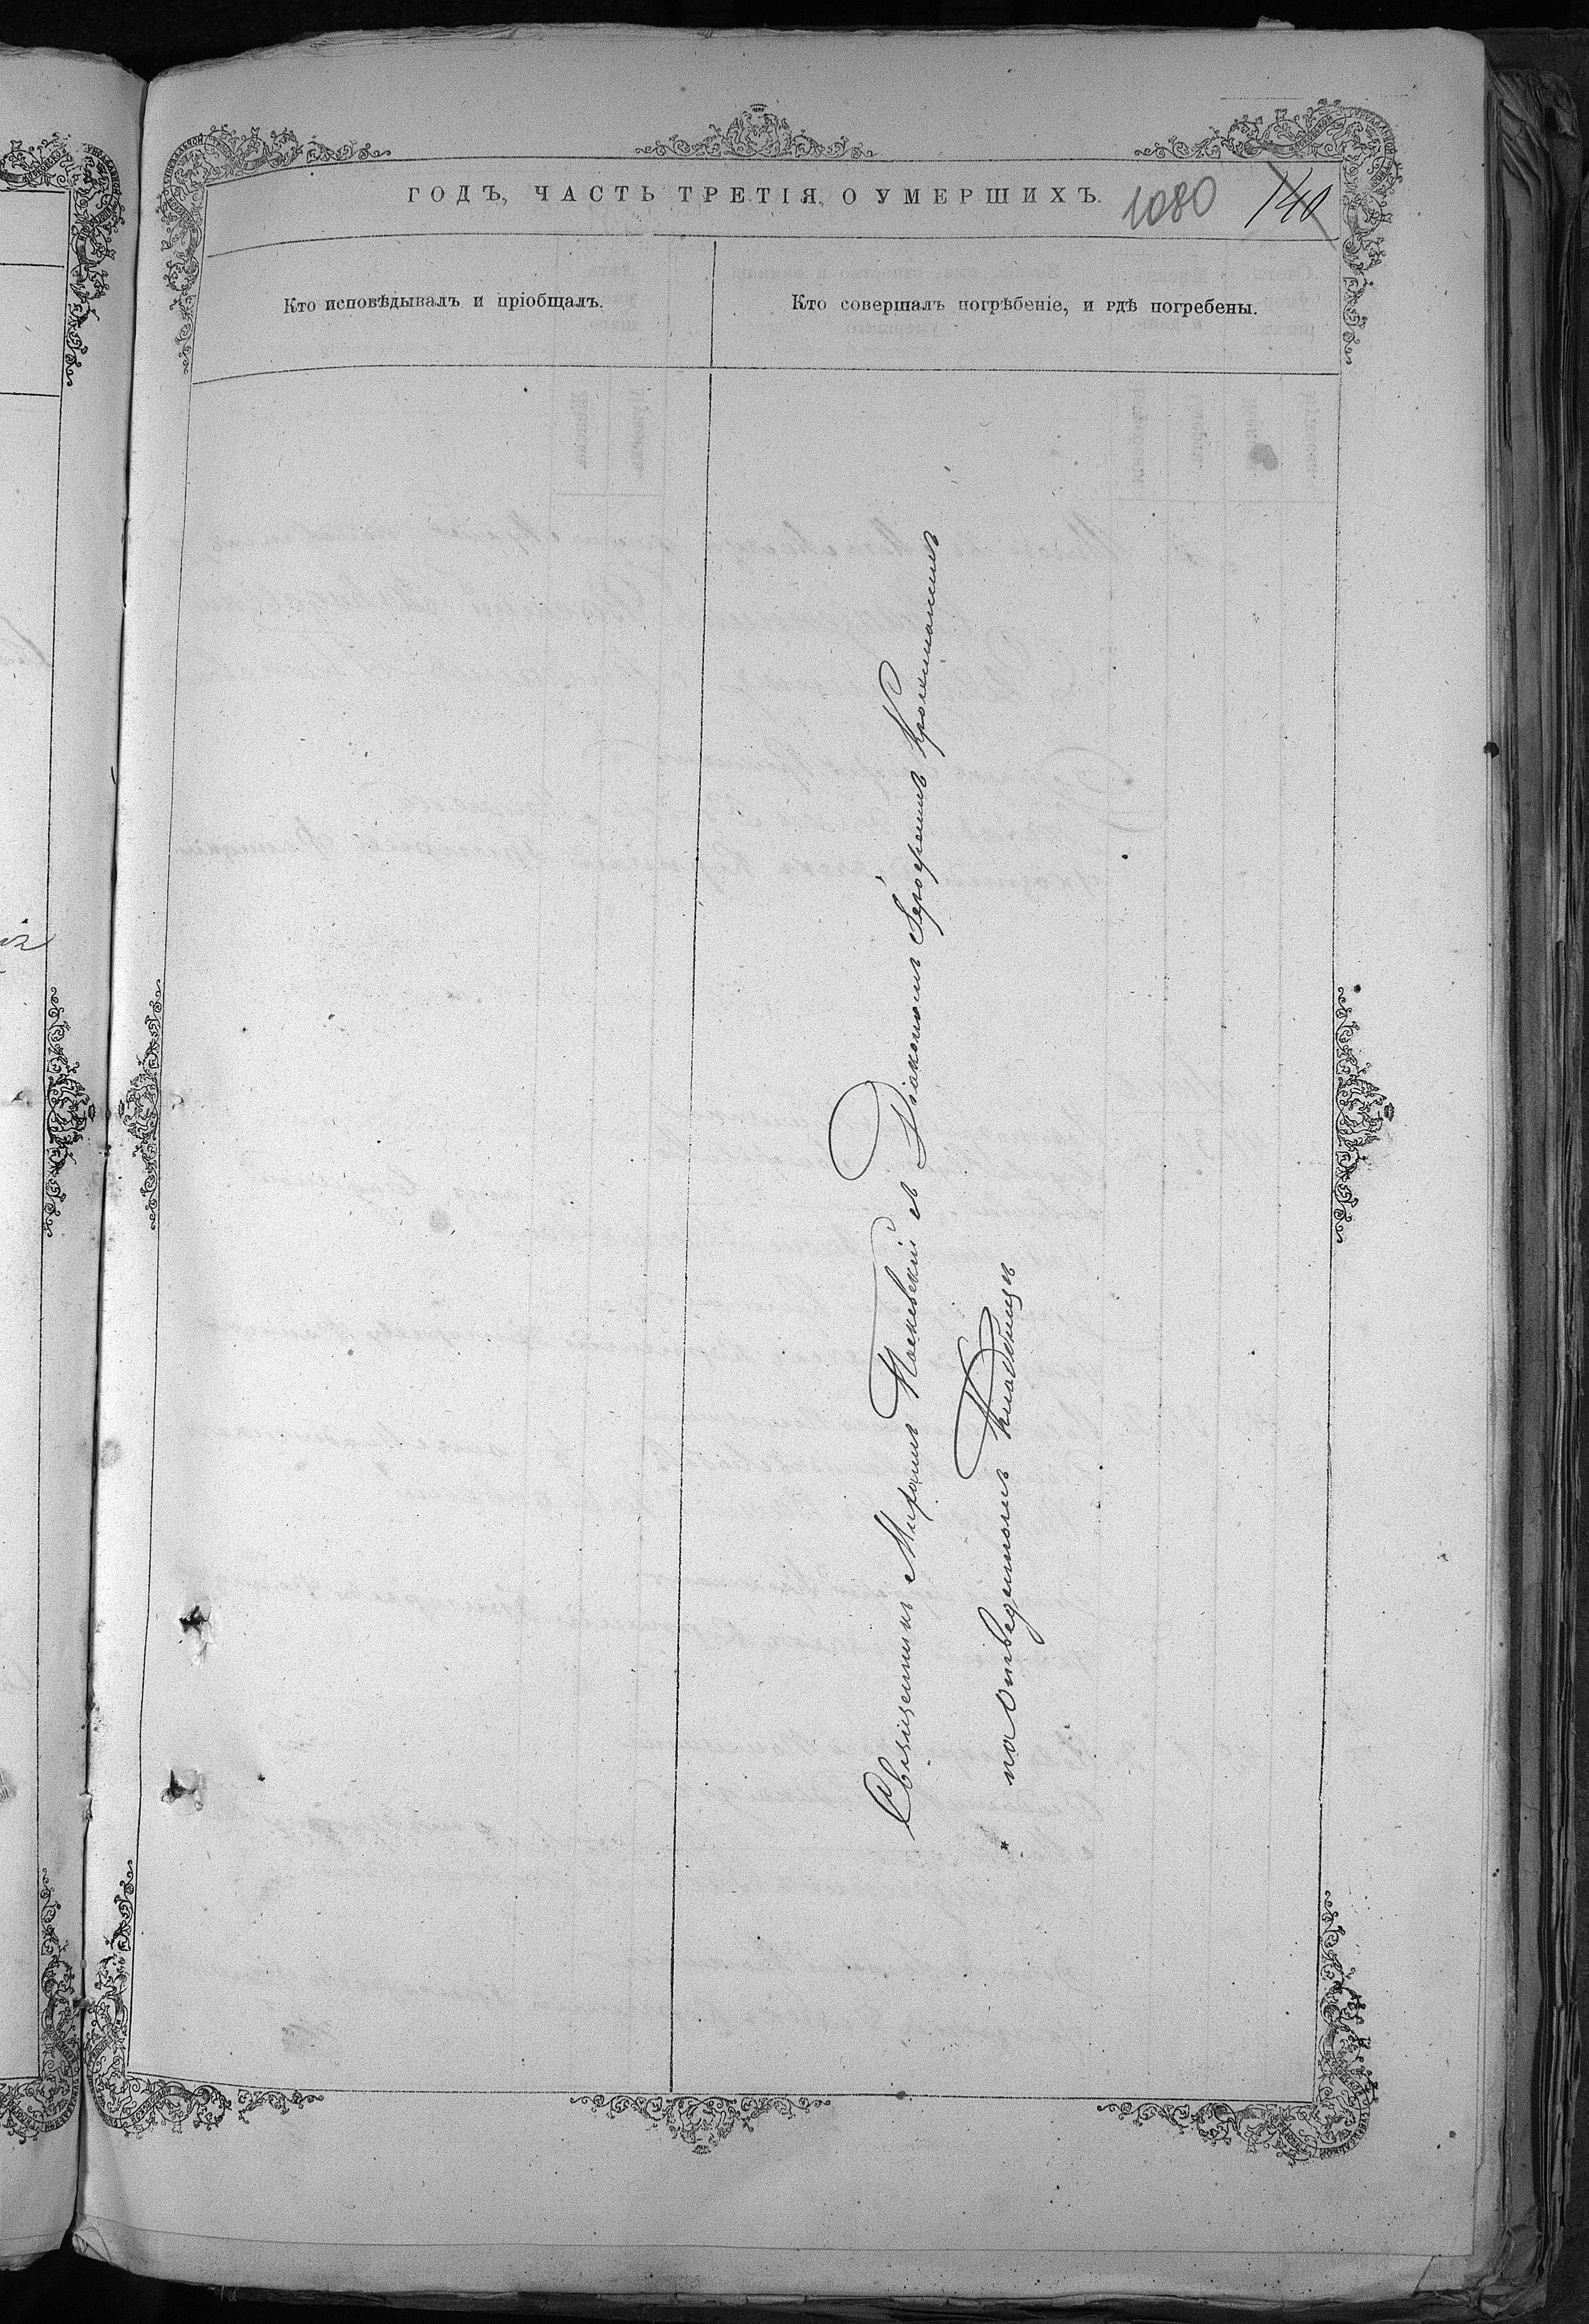 ГОДЪ, ЧАСТЬ ТРЕТІЯ, О УМЕРШИХЪ.
1080
140
Кто исповѣдывалъ и пріобщалъ.
Кто совершалъ погрѣбеніе, и гдѣ погребены.
Священникъ Миронъ Паевскій съ Діакономъ Серафимъ
на отведенномъ Кладбищѣ